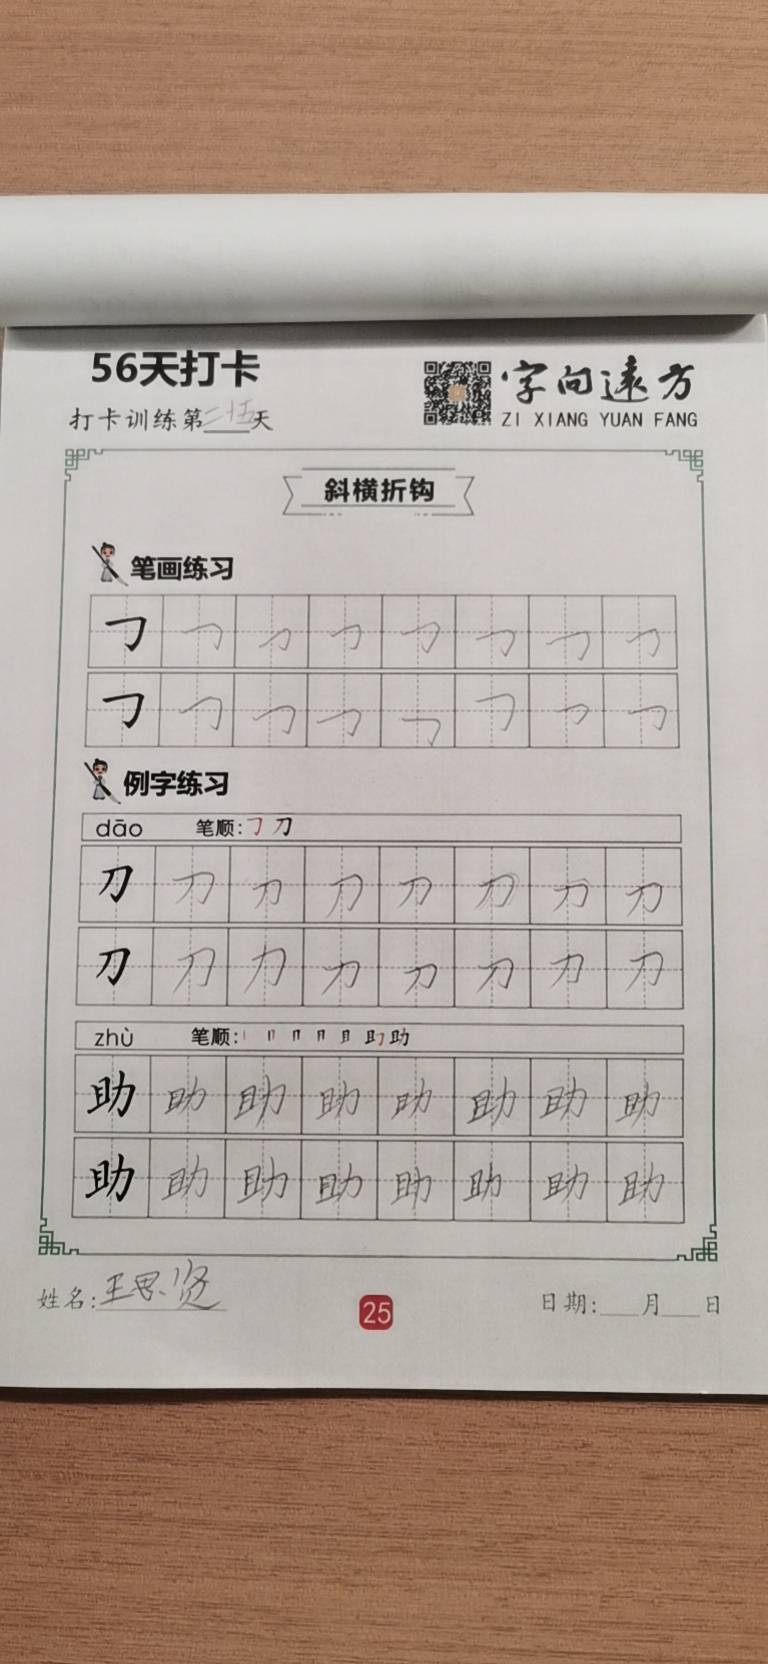 56天打卡
字向远方
打卡训练第二十五天
ZI XIANG YUAN FANG
斜横折钩
笔画练习
㇆ ㇆ ㇆ ㇆ ㇆ ㇆ ㇆ ㇆
㇆ ㇆ ㇆ ㇆ ㇆ ㇆ ㇆ ㇆
例字练习
dāo 笔顺:㇆ 刀
刀 刀 刀 刀 刀 刀 刀 刀
刀 刀 刀 刀 刀 刀 刀 刀
zhù 笔顺:丨 冂 月 且 助 助
助 助 助 助 助 助 助 助
助 助 助 助 助 助 助 助
姓名:王思贤
25
日期:___月___日